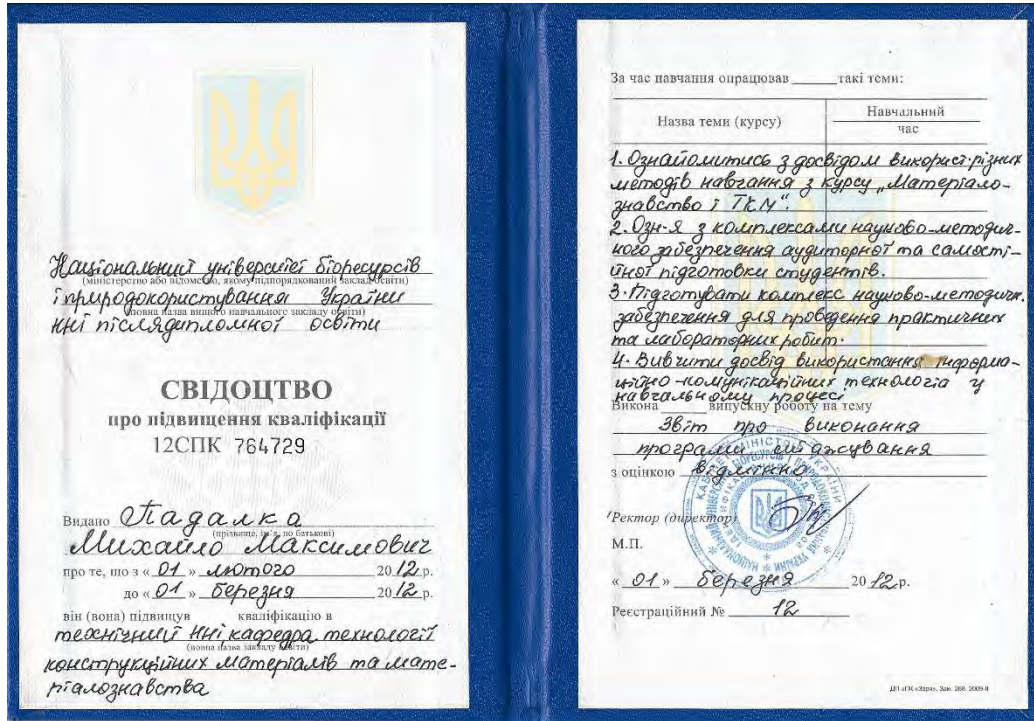 Національний університет біоресурсів
(міністерство або відомство, якому підпорядкований заклад освіти)
і природокористування України
(повна назва вищого навчального закладу освіти)
ННІ післядипломної освіти
СВІДОЦТВО
про підвищення кваліфікації
12СПК 764729
Видано Падалка
(прізвище, ім'я, по батькові)
Михайло Максимович
про те, що з « 01 » лютого 2012 р.
до « 01 » березня 2012 р.
він (вона) підвищув кваліфікацію в
технічний ННІ, кафедра технології
(повна назва закладу освіти)
конструкційних матеріалів та мате-
ріалознавства
За час навчання опрацював ____ такі теми:
Назва теми (курсу)
Навчальний
час
1. Ознайомитись з досвідом використ. різних
методів навчання з курсу „Матеріало-
знавство і ТКМ".
2. Озн-я з комплексами науково-методич-
ного забезпечення аудиторної та самості-
йної підготовки студентів.
3. Підготувати комплекс науково-методичн.
забезпечення для проведення практичних
та лабораторних робіт.
4. Вивчити досвід використання інформа-
ційно-комунікаційних технологій у
навчальному процесі
Викона ____ випускну роботу на тему
Звіт про виконання
програми стажування
з оцінкою відмінно
Ректор (директор)
М.П.
« 01 » березня 2012 р.
Реєстраційний № 12
ДП «ГК «Зоря». Зам. 268. 2009-8